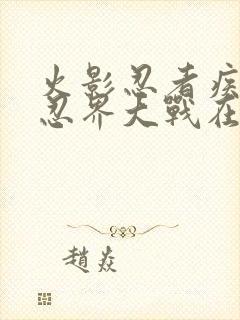 火影忍者疾
忍界大戰在
趙焱